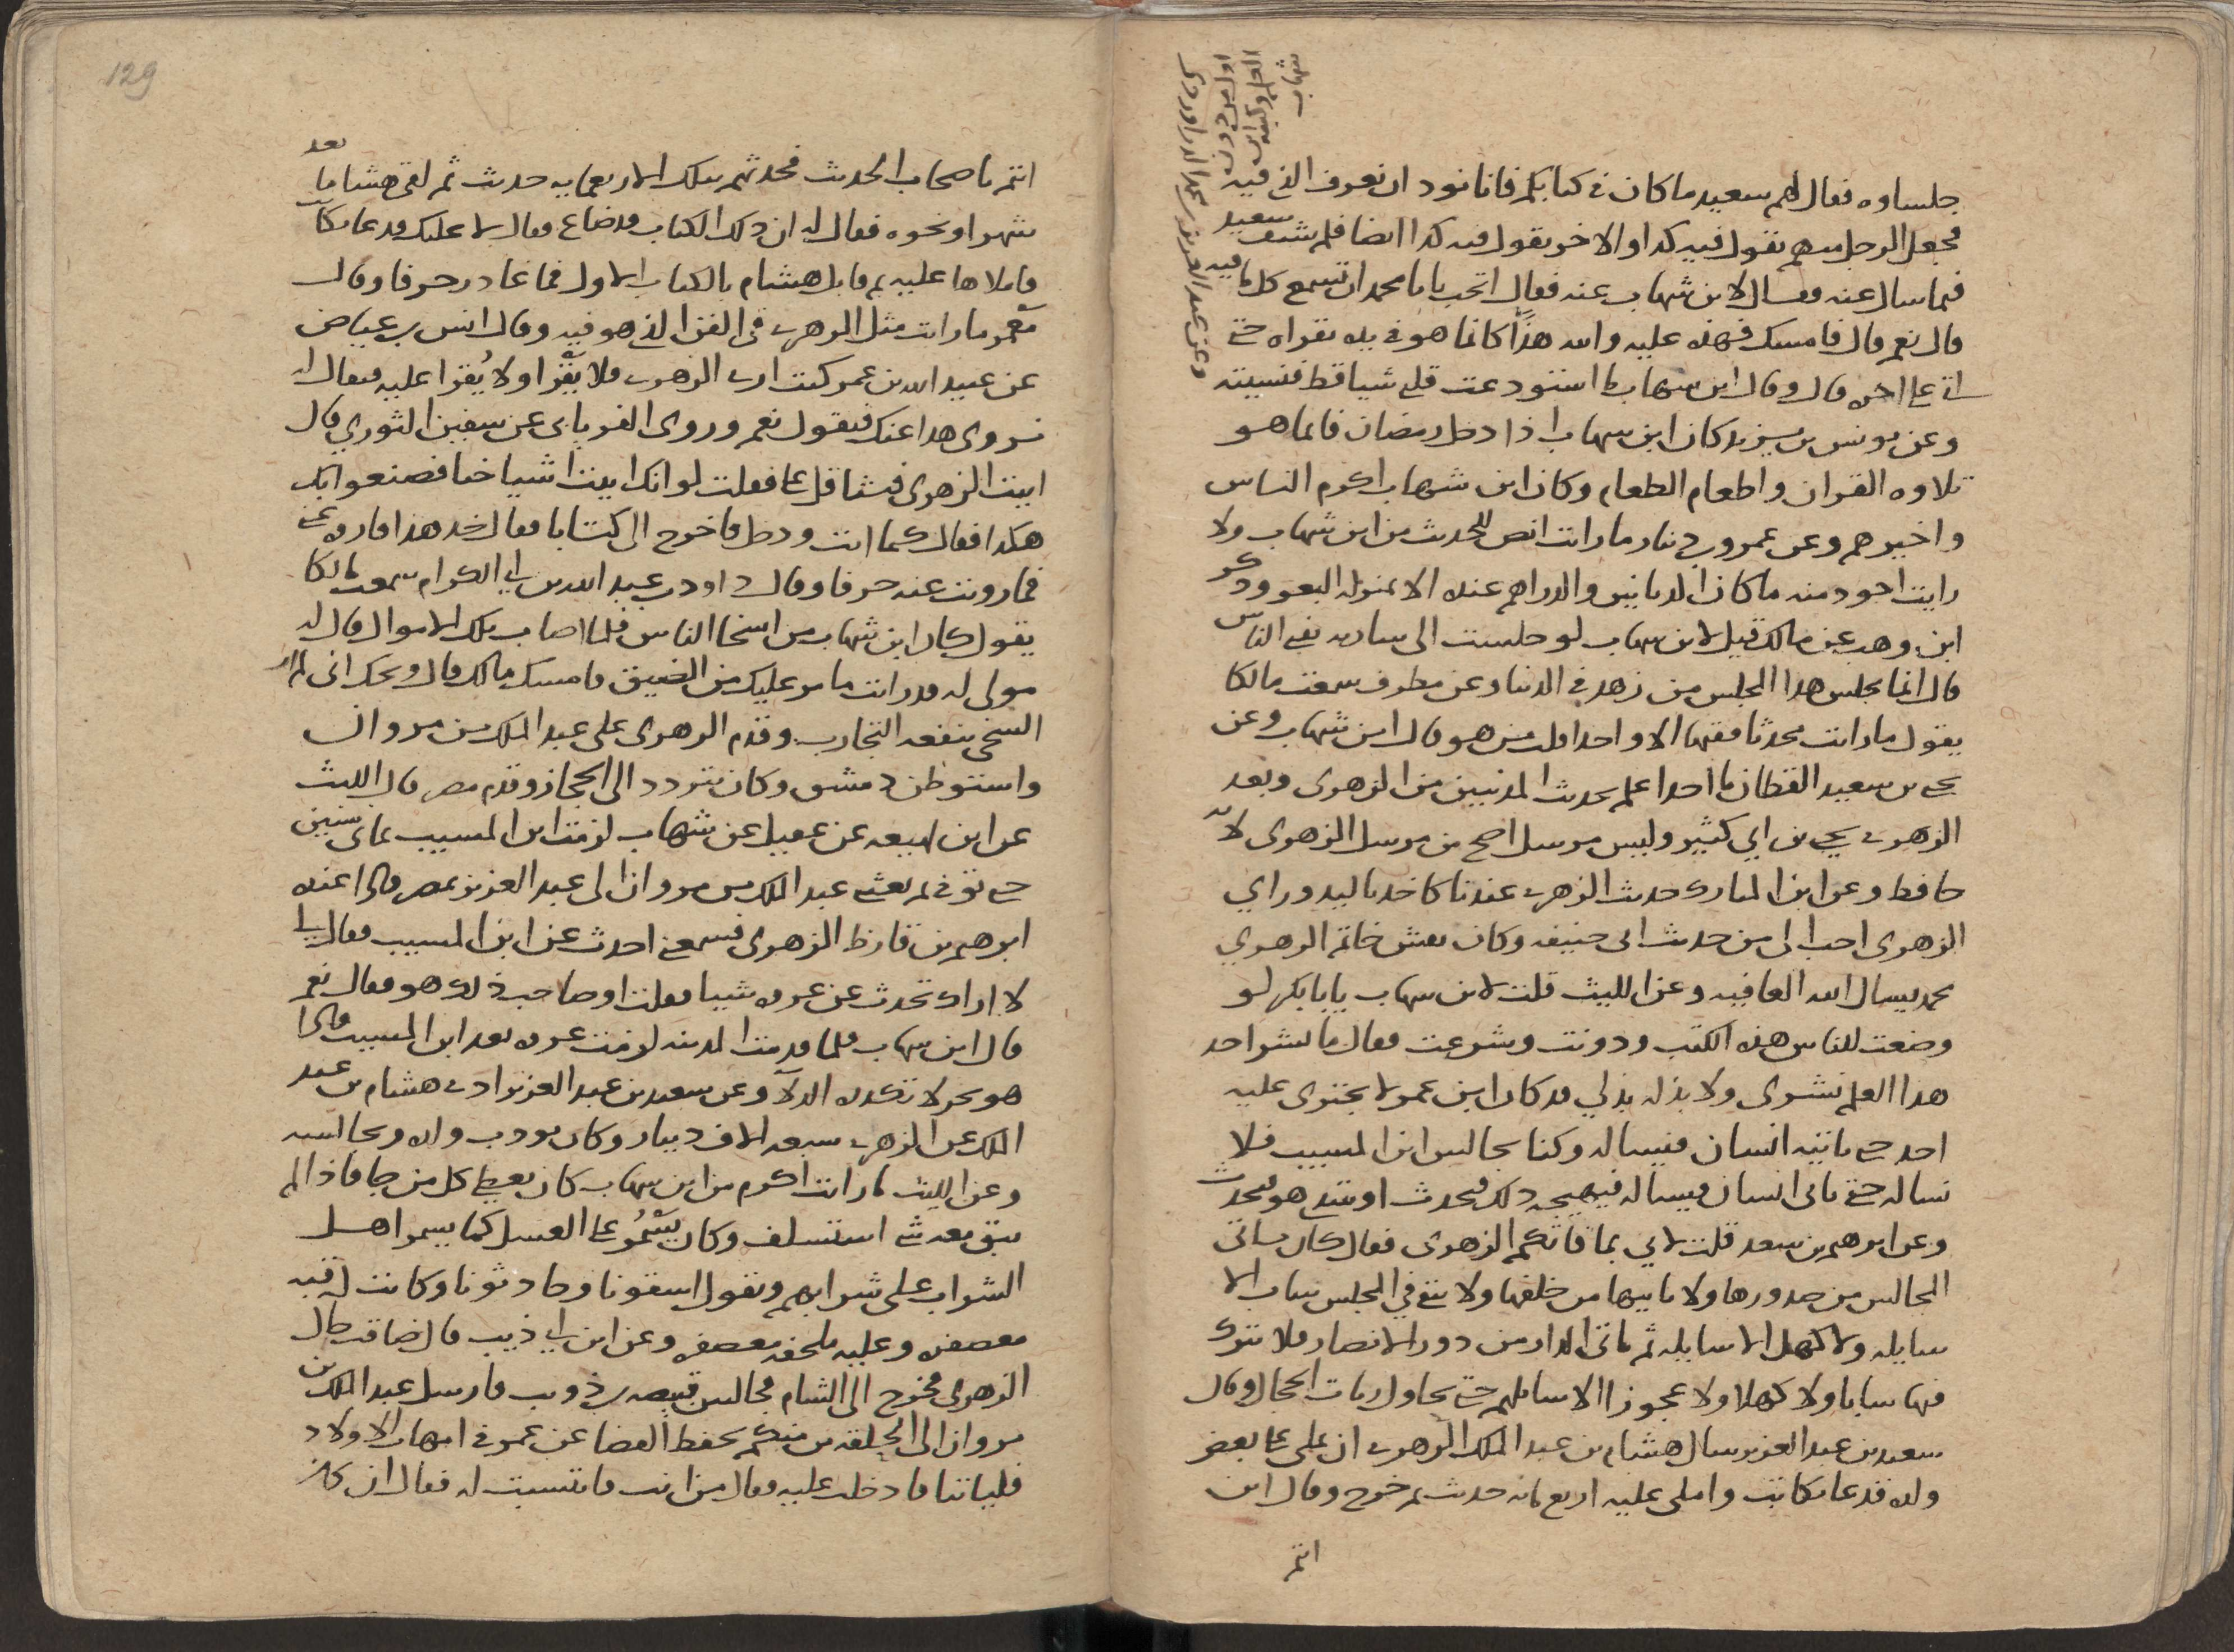 جلساوه فقال لهم سعيد ما كان في كتابكم فانا نود ان نعرف الذي فيه
فجعل الرجل منهم يقول فيه كذا والاخر يقول فيه كذا ايضا فلم يشف سعيد
فيما سال عنه فقال لابن شهاب عنه فقال اتحب يابا محمد ان تسمع كل ما فيه
قال نعم قال فامسك فهذه عليه والله هذًا كانما هو في يده يقراه حتى
اتى على اخره قال وقال ابن شهاب ما استودعت قلبي شيا قط فنسيته
وعن يونس بن يزيد كان ابن شهاب اذا دخل رمضان فانما هو
تلاوه القران واطعام الطعام وكان ابن شهاب اكرم الناس
واخيرهم وعن عمرو بن دينار ما رايت انص للحديث من ابن شهاب ولا
رايت اجود منه ما كان الدنانير والدراهم عنده الا بمنزله البعر وذكر
ابن وهب عن مالك قيل لابن شهاب لو جلست الى ساريه تفتي الناس
قال انما يجلس هذا المجلس من زهد في الدنيا وعن مطرف سمعت مالكا
يقول ما رايت محدثا فقيها الا واحدا قلت من هو قال ابن شهاب وعن
يحيى بن سعيد القطان ما احد اعلم بحديث المدنيين من الزهري وبعد
الزهري يحيى بن ابي كثير وليس مرسل اصح من مرسل الزهري لانه
حافظ وعن ابن المبارك حديث الزهري عندنا كاخذ باليد وراي
الزهري احب الى من حديث ابي حنيفه وكان نقش خاتم الزهري
محمد يسال الله العافيه وعن الليث قلت لابن شهاب يابا بكر لو
وضعت للناس هذه الكتب ودونت وشرعت فقال ما نشر احد
هذا العلم نشري ولا بذله بذلي قد كان ابن عمر لا يجترى عليه
احد حتى ياتيه انسان فيساله وكنا نجالس ابن المسيب فلا
نساله حتى ياتى انسان فيساله فيهيجه ذلك فيحدث او يبتدى هو فيحدث
وعن ابرهيم بن سعد قلت لابي بما فاتكم الزهري فقال كان ياتى
المجالس من صدورها ولا ياتيها من خلفها ولا يبقى في المجلس شاب الا
سايله ولا كهل الا سايله ثم ياتى الدار من دور الانصار فلا يترك
فيها شابا ولا كهلا ولا عجوزا الا سايلهم حتى يحاول ربات الحجال وقال
سعيد بن عبد العزيز سال هشام بن عبد الملك الزهري ان يملي على بعض
ولده فدعا بكاتب واملى عليه اربع مايه حديث ثم خرج وقال اين
انتم
وعن عبد العزيز بن محمد الدراوردي
اول من دون
العلم وكتبه ابن
شهاب
129
انتم ياصحاب الحديث فحدثهم بتلك الاربعمايه حديث ثم لقي هشاما بعد
شهر او نحوه فقال له ان ذلك الكتاب قد ضاع فقال لا عليك فدعا بكاتب
فاملاها عليه ثم قابل هشام بالكتاب الاول فما غادر حرفا وقال
معمر ما رايت مثل الزهري في الفن الذي هو فيه وقال انس بن عياض
عن عبيد الله بن عمر كنت ارى الزهري فلا يَقْرا ولا يُقرا عليه فيقال له
نروي هذا عنك فيقول نعم وروى الفريابى عن سفين الثوري قال
اتيت الزهري فتثاقل على فقلت لو انك اتيت اشياخنا فصنعوا بك
هكذا فقال كما انت ودخل فاخرج الى كتابا فقال خذ هذا فاروه عني
فما رويت عنه حرفا وقال داود بن عبد الله بن ابي الكرام سمعت مالكا
يقول كان ابن شهاب من اسخا الناس فلما اصاب تلك الاموال قال له
مولى له قد رايت ما مر عليك من الضيق فامسك مالك قال ويحك انى لم ار
السخي تنفعه التجارب وقدم الزهري على عبد الملك بن مروان
واستوطن دمشق وكان يتردد الى الحجاز وقدم مصر قال الليث
عن ابن لهيعه عن عقيل عن شهاب لزمت ابن المسيب ثمانى سنين
حتى توفي ثم بعثني عبد الملك بن مروان الى عبد العزيز بمصر وكان عنده
ابرهيم بن قارظ الزهري فسمعني احدث عن ابن المسيب فقال لي
لا اراك تحدث عن عروه شيا فقلت اوصاحب ذلك هو فقال نعم
قال ابن شهاب فلما قدمت المدينه لزمت عروه بعد ابن المسيب فاذا
هو بحر لا تكدره الدلاء وعن سعيد بن عبد العزيز ادى هشام بن عبد
الملك عن الزهري سبعه الاف دينار وكان يودب ولده ويجالسه
وعن الليث ما رايت اكرم من ابن شهاب كان يعطي كل من جا فاذا لم
يبق معه شي استسلف وكان يَسْمُر على العسل كما يسمر اهل
الشراب على شرابهم ويقول اسقونا وحادثونا وكانت له قبه
معصفره وعليه ملحفه معصفره وعن ابن ابي ذيب قال ضاقت حال
الزهري فخرج الى الشام فجالس قبيصه بن ذويب فارسل عبد الملك بن
مروان الى الحلقه من منكم يحفظ القضا عن عمر في امهات الاولاد
فلياتنا فادخلت عليه فقال من انت فانتسبت له فقال ان كان